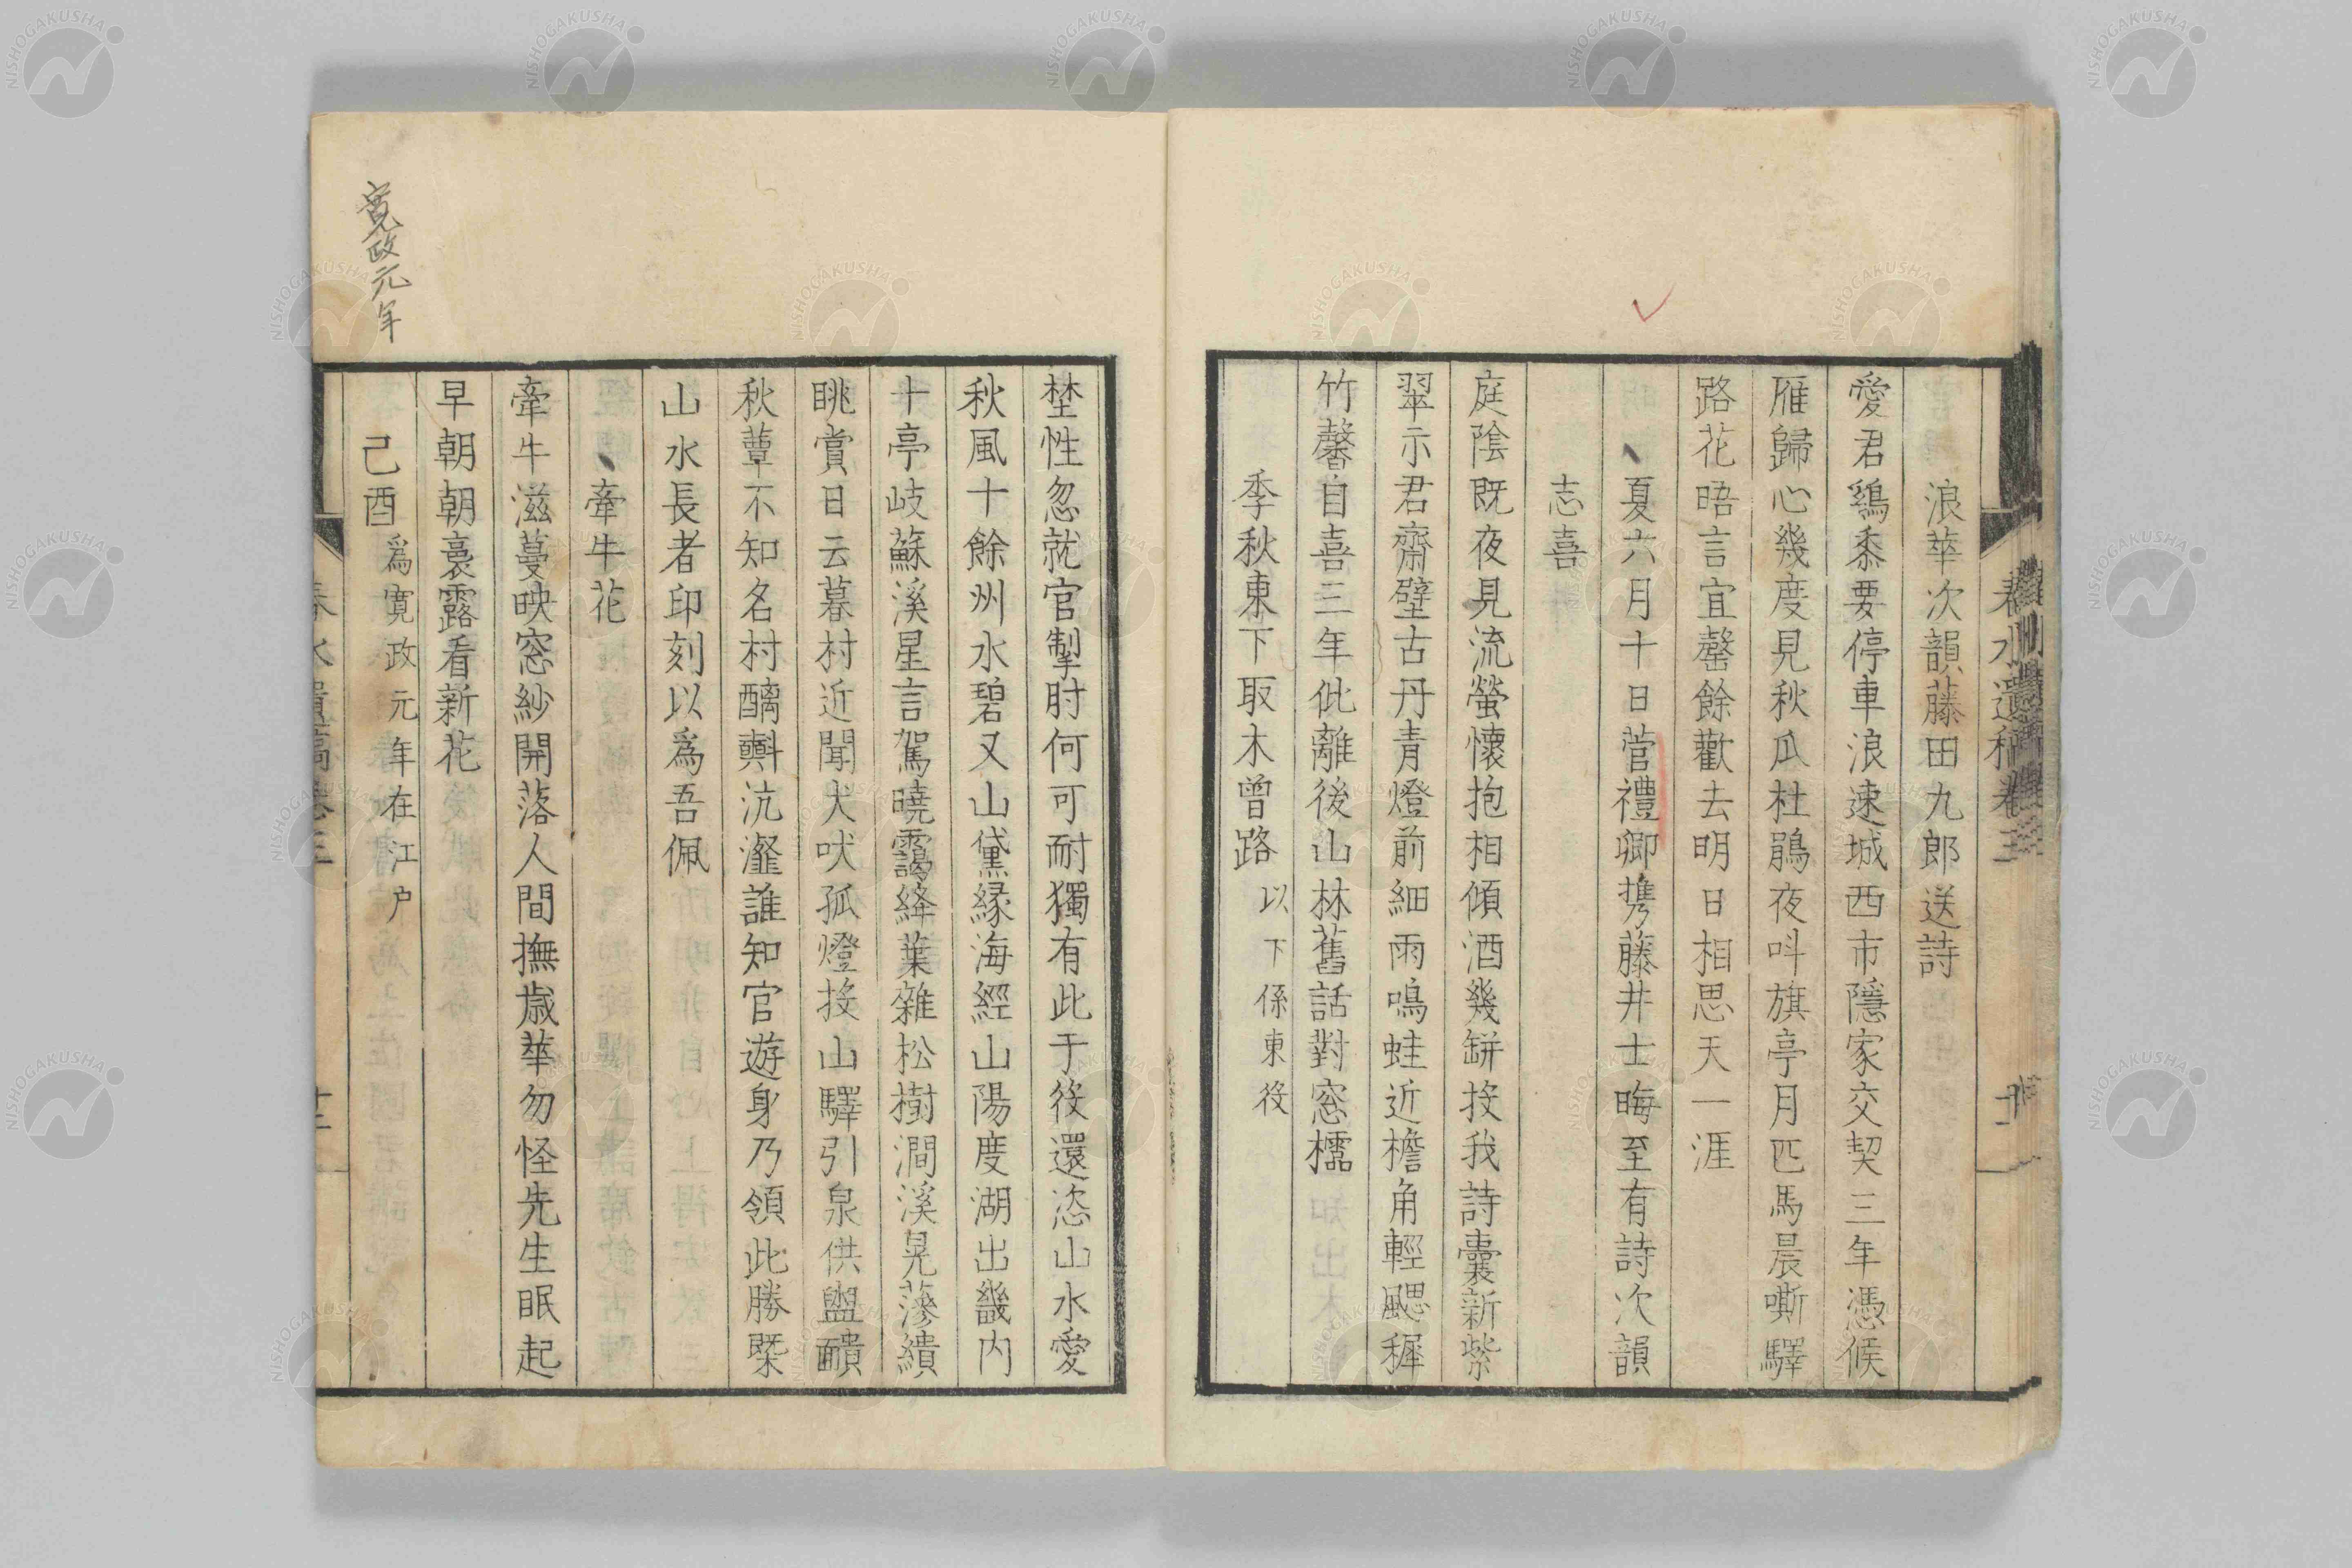 春水遺稿卷三
十二
浪華次韻藤田九郎送詩
愛君鷄黍要停車浪速城西市隱家交契三年憑候
雁歸心幾度見秋瓜杜鵑夜呌旗亭月匹馬晨嘶驛
路花晤言宜罄餘歡去明日相思天一涯
夏六月十日菅禮卿攜藤井士晦至有詩次韻
志喜
庭陰既夜見流螢懷抱相傾酒幾缾投我詩囊新紫
翠示君齋壁古丹青燈前細雨鳴蛙近檐角輕颸穉
竹馨自喜三年仳離後山林舊話對窓櫺
季秋東下取木曾路以下係東役
埜性忽就官掣肘何可耐獨有此于役還恣山水愛
秋風十餘州水碧又山黛緣海經山陽度湖出畿內
十亭岐蘇溪星言駕曉靄絳葉雜松樹澗溪晃蔘繢
眺賞日云暮村近聞犬吠孤燈投山驛引泉供盥靧
秋蕈不知名村醨㪺沆瀣誰知官遊身乃領此勝槩
山水長者印刻以爲吾佩
牽牛花
牽牛滋蔓映窓紗開落人間撫歲華勿怪先生眠起
早朝朝裛露看新花
己酉爲寬政元年在江戶
寛政元年
NISHOGAKUSHA